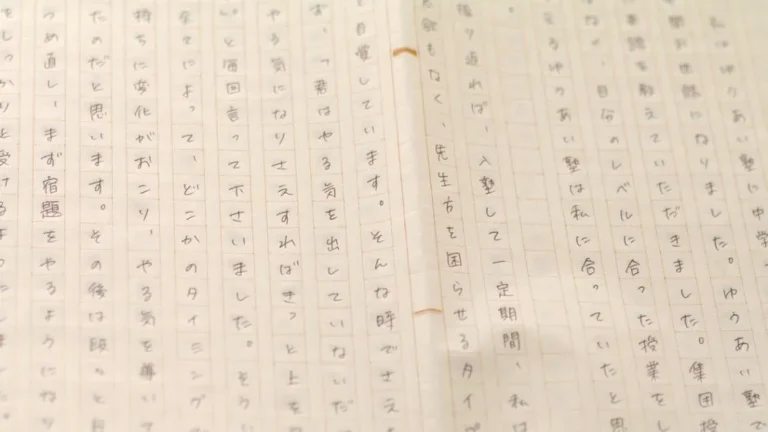 ゆうあい塾に中学
間お世話になりました。ゆうあい塾で
英語を教えていただきました。集団授
自分のレベルに合った授業をし
ゆうあい塾は私に合っていたと思
。
振り返れば、入塾して一定期間、私は
もなく、先生方を困らせるタイプ
自覚しています。そんな時でさえ
「君はやる気を出していないだ
やる気になりさえすればきっと上を
い。」と毎回言って下さいました。そうい
によって、どこかのタイミング
持ちに変化がおこり、やる気を導いて
たのだと思います。その後は段々と
つめ直し、まず宿題をやるようにな
をしっかりと受けるようにしま